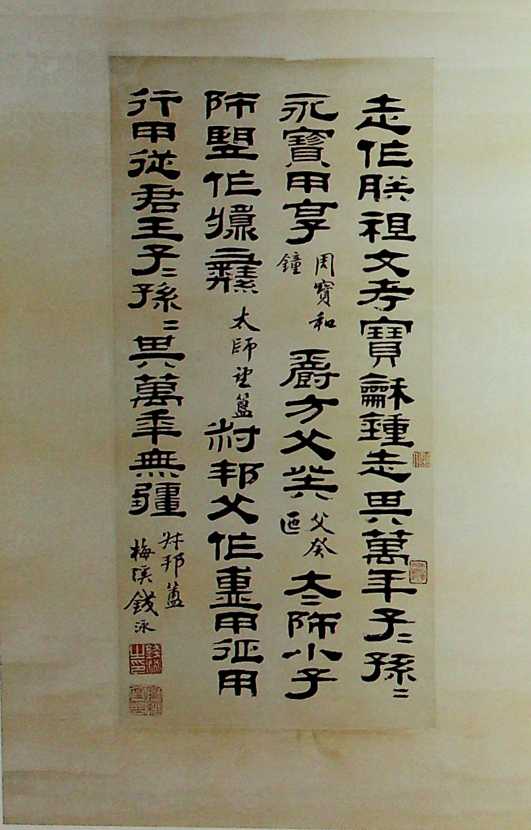 走作朕祖文考寶龢鍾走其萬年子〻孫〻
永寶用享
周寶和
鐘
爵方父癸
父癸
匜
太師小子
師望作彝
太師望簋
叔邦父作用征用
行用從君王子〻孫〻其萬年無疆
叔邦簠
梅溪錢泳